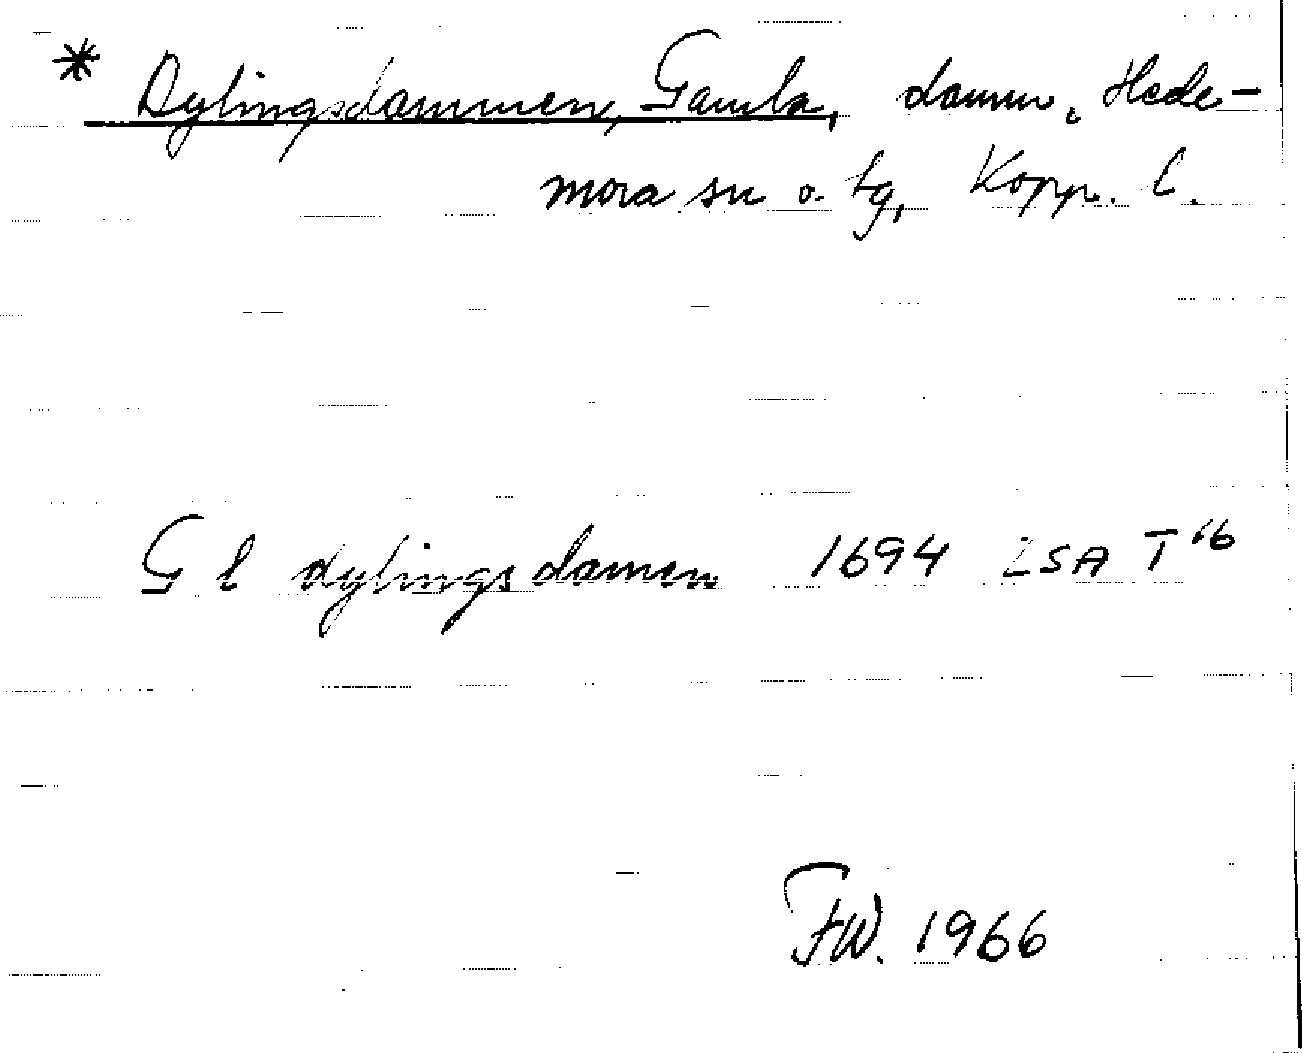 * Dylingsdammen, Gamla, damm, Hede-
mora sn o. tg, Kopp. l.
G l dylingsdamen 1694 LSA T 16
FW. 1966